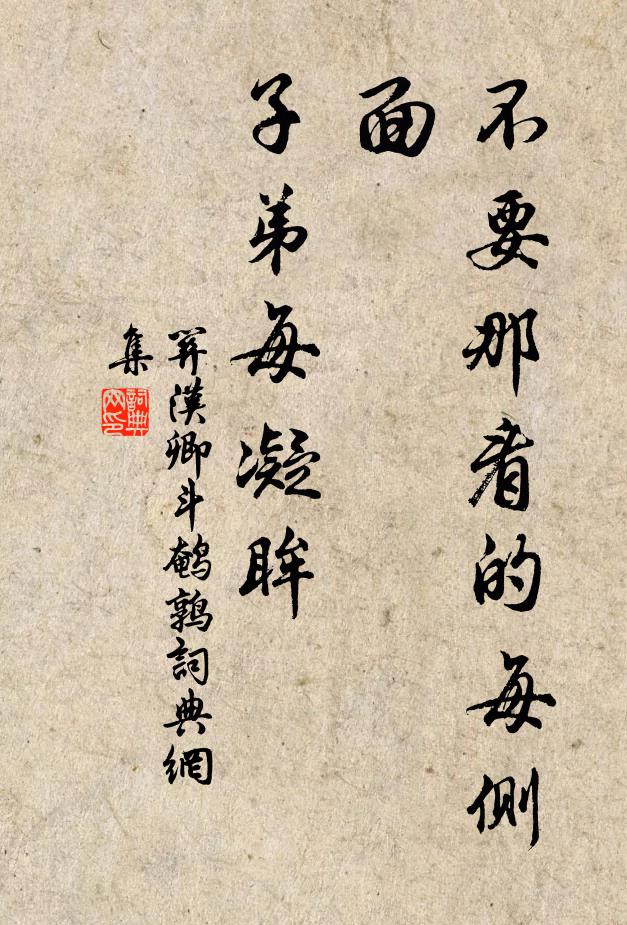 不要那看的每側
面
子弟每凝眸
關漢卿斗鵪鶉詞典網
集
詞典網印